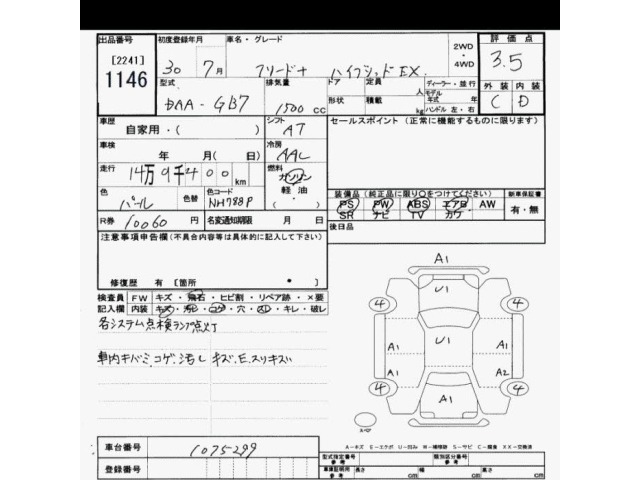 出品番号 初度登録年月 車名・グレード 2WD・4WD 評価点
[2241] 1146 30年 7月 フリード+ ハイブリッド EX. 3.5
型式 排気量 ドア 定員 人 ディーラー・並行
DAA-GB7 1500 CC 形状 積載 kg モデル年式 年 ハンドル 左・右
外装 内装
C D
車歴 自家用・( ) シフト AT セールスポイント (正常に機能するものに限ります)
車検 年 月( 日) 冷房 AAC
走行 14万9千400km 燃料 ガソリン 軽油 ・( )
色 パール 色替 色コード NH788P
装備品(純正品に限り○をつけてください) 新車保証書
PS PW ABS エアB AW 有・無
SR ナビ TV カワ
R券 10060円 名変通知期限 月 日 後日品
注意事項申告欄(不具合内容等は具体的に記入して下さい)
修復歴 有 [箇所 ]
検査員記入欄 FW キズ・飛石・ヒビ割・リペア跡・×要
内装 キズ・汚レ・コゲ・穴・スレ・キレ・破レ
各システム点検ランプ点灯
車内キバミ、コゲ、汚し キズ、E、スリキズ
A1
4 U1 4
A1 U1 A1
A1 A2
4 A1 4
スペア
A-キズ E-エクボ U-凹み W-補修跡 S-サビ C-腐食 XX-交換済
車台番号 1075299
登録番号
型式指定番号 参考 類別区分番号 参考
車庫証明用 参考 長さ cm 幅 cm 高さ cm